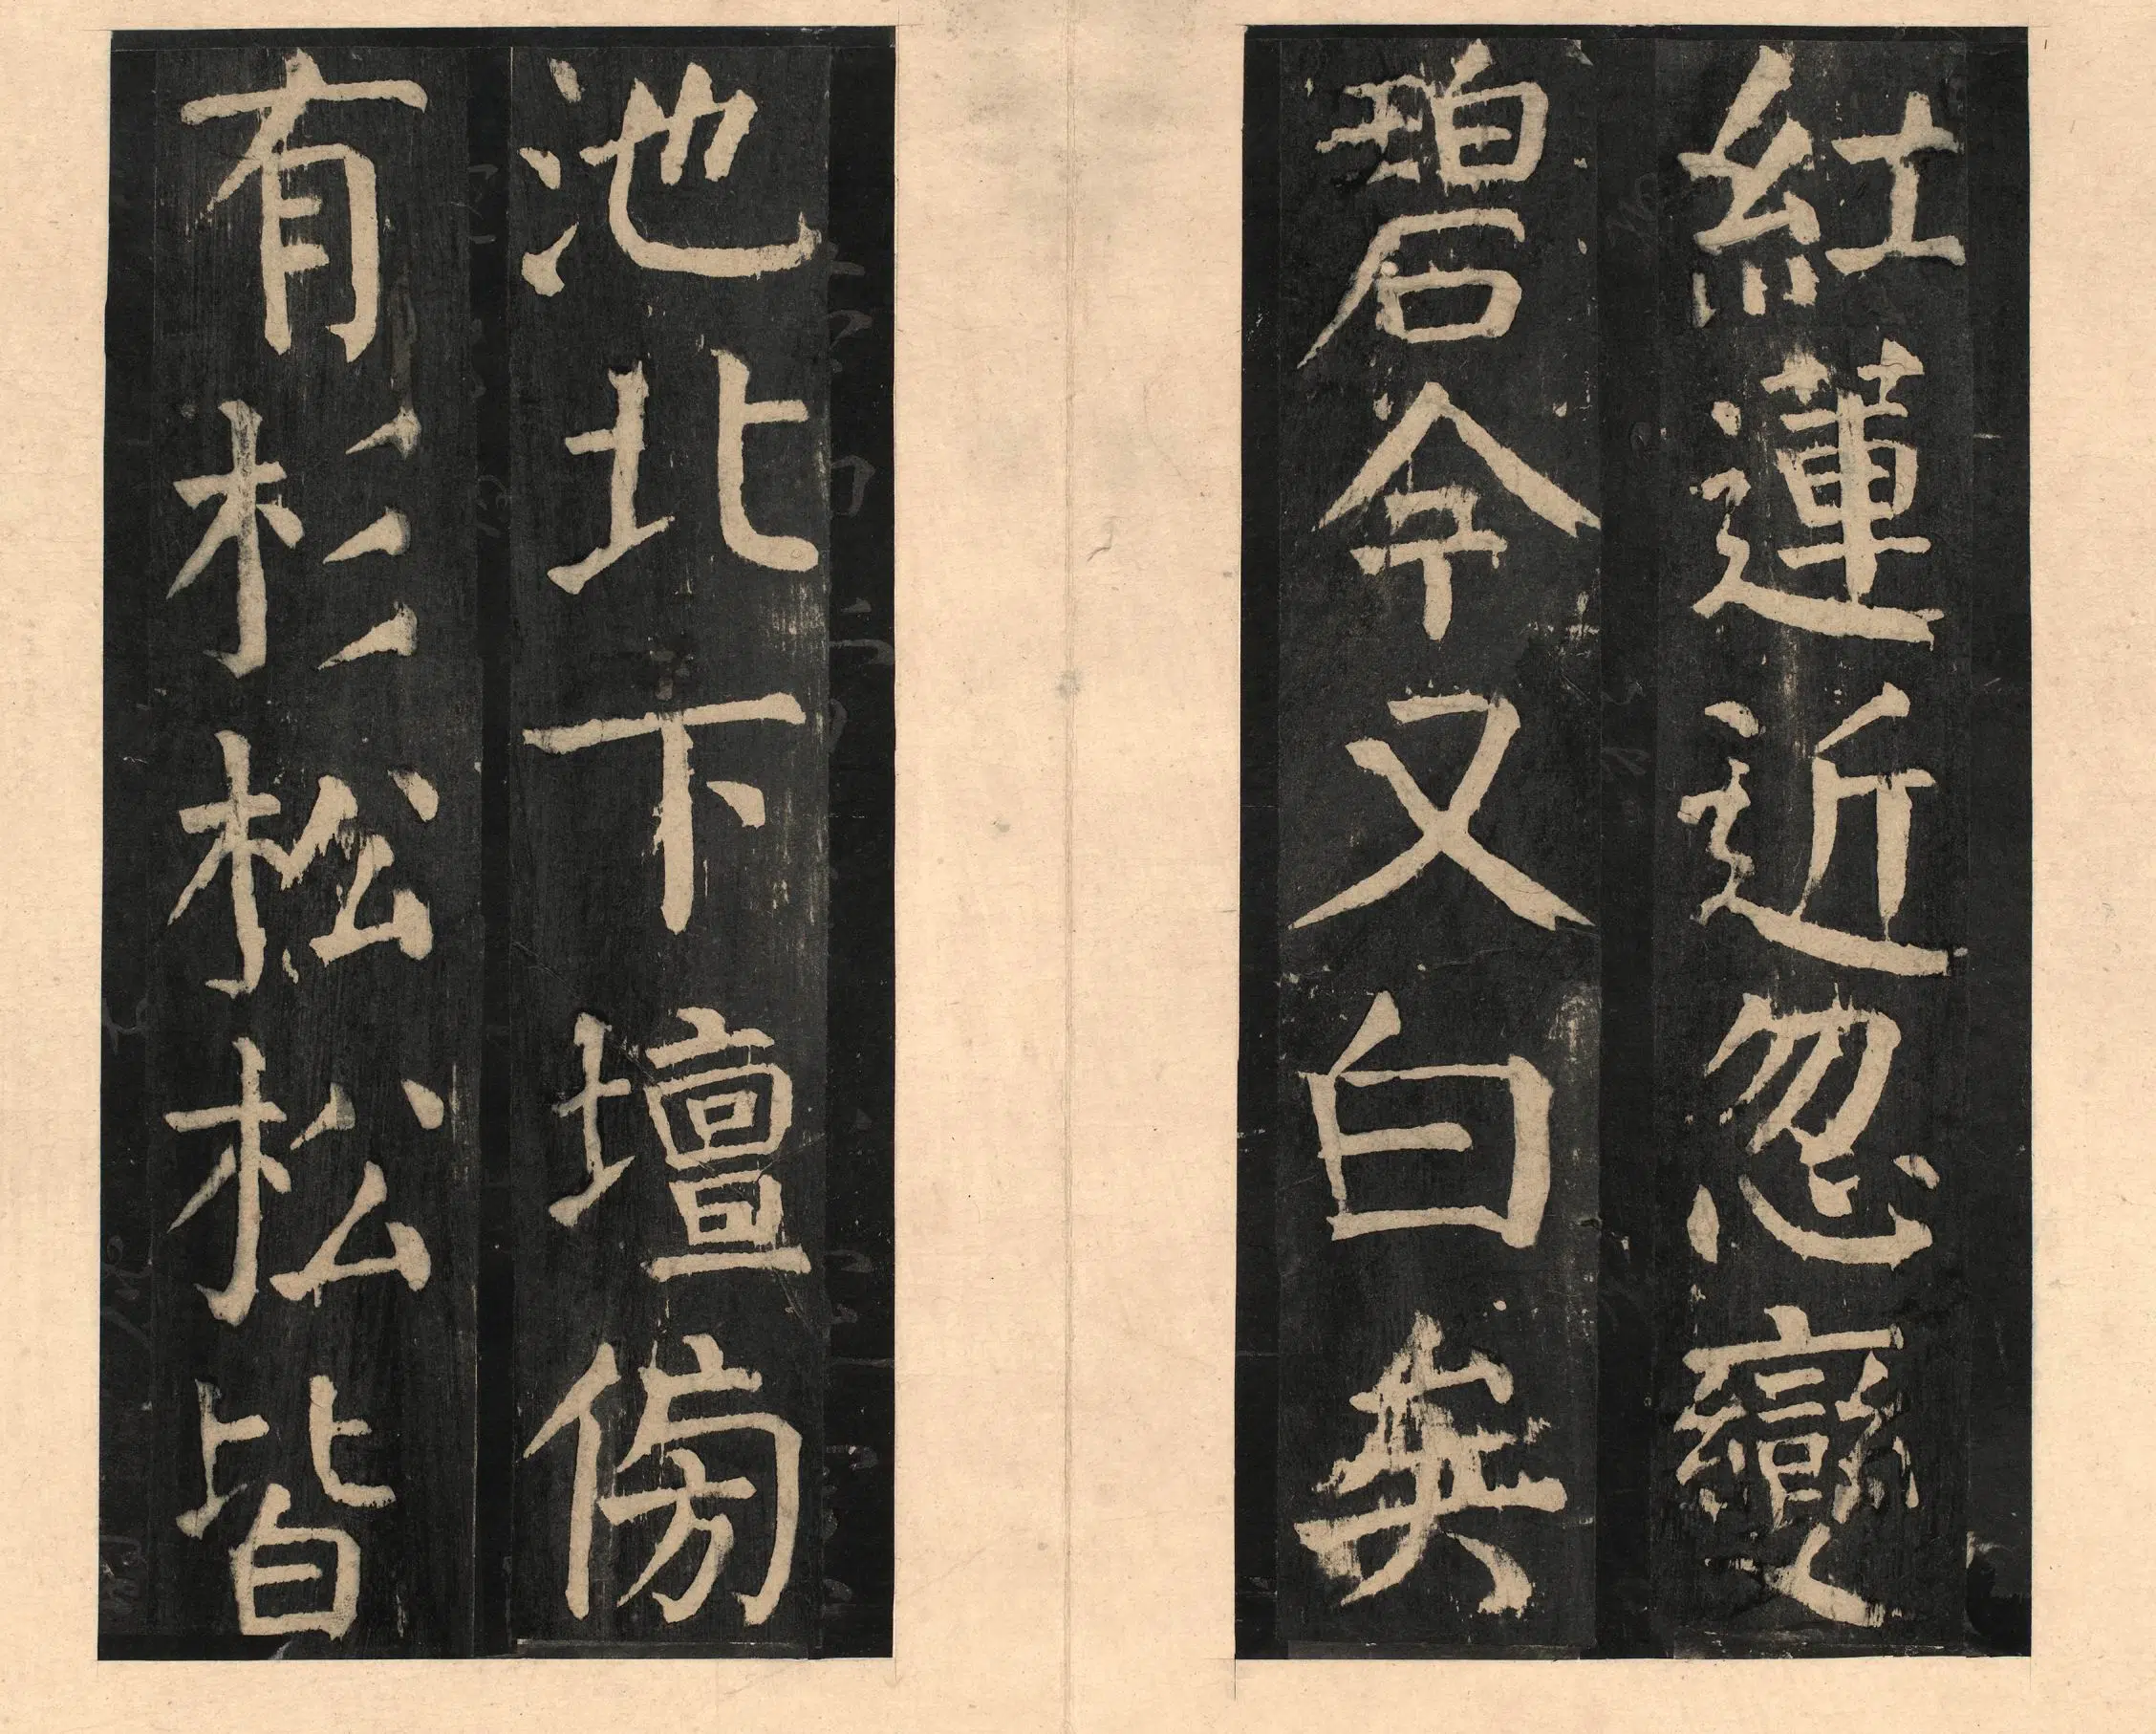 紅蓮近忽變
碧今又白矣
池北下壇傍
有杉松松皆